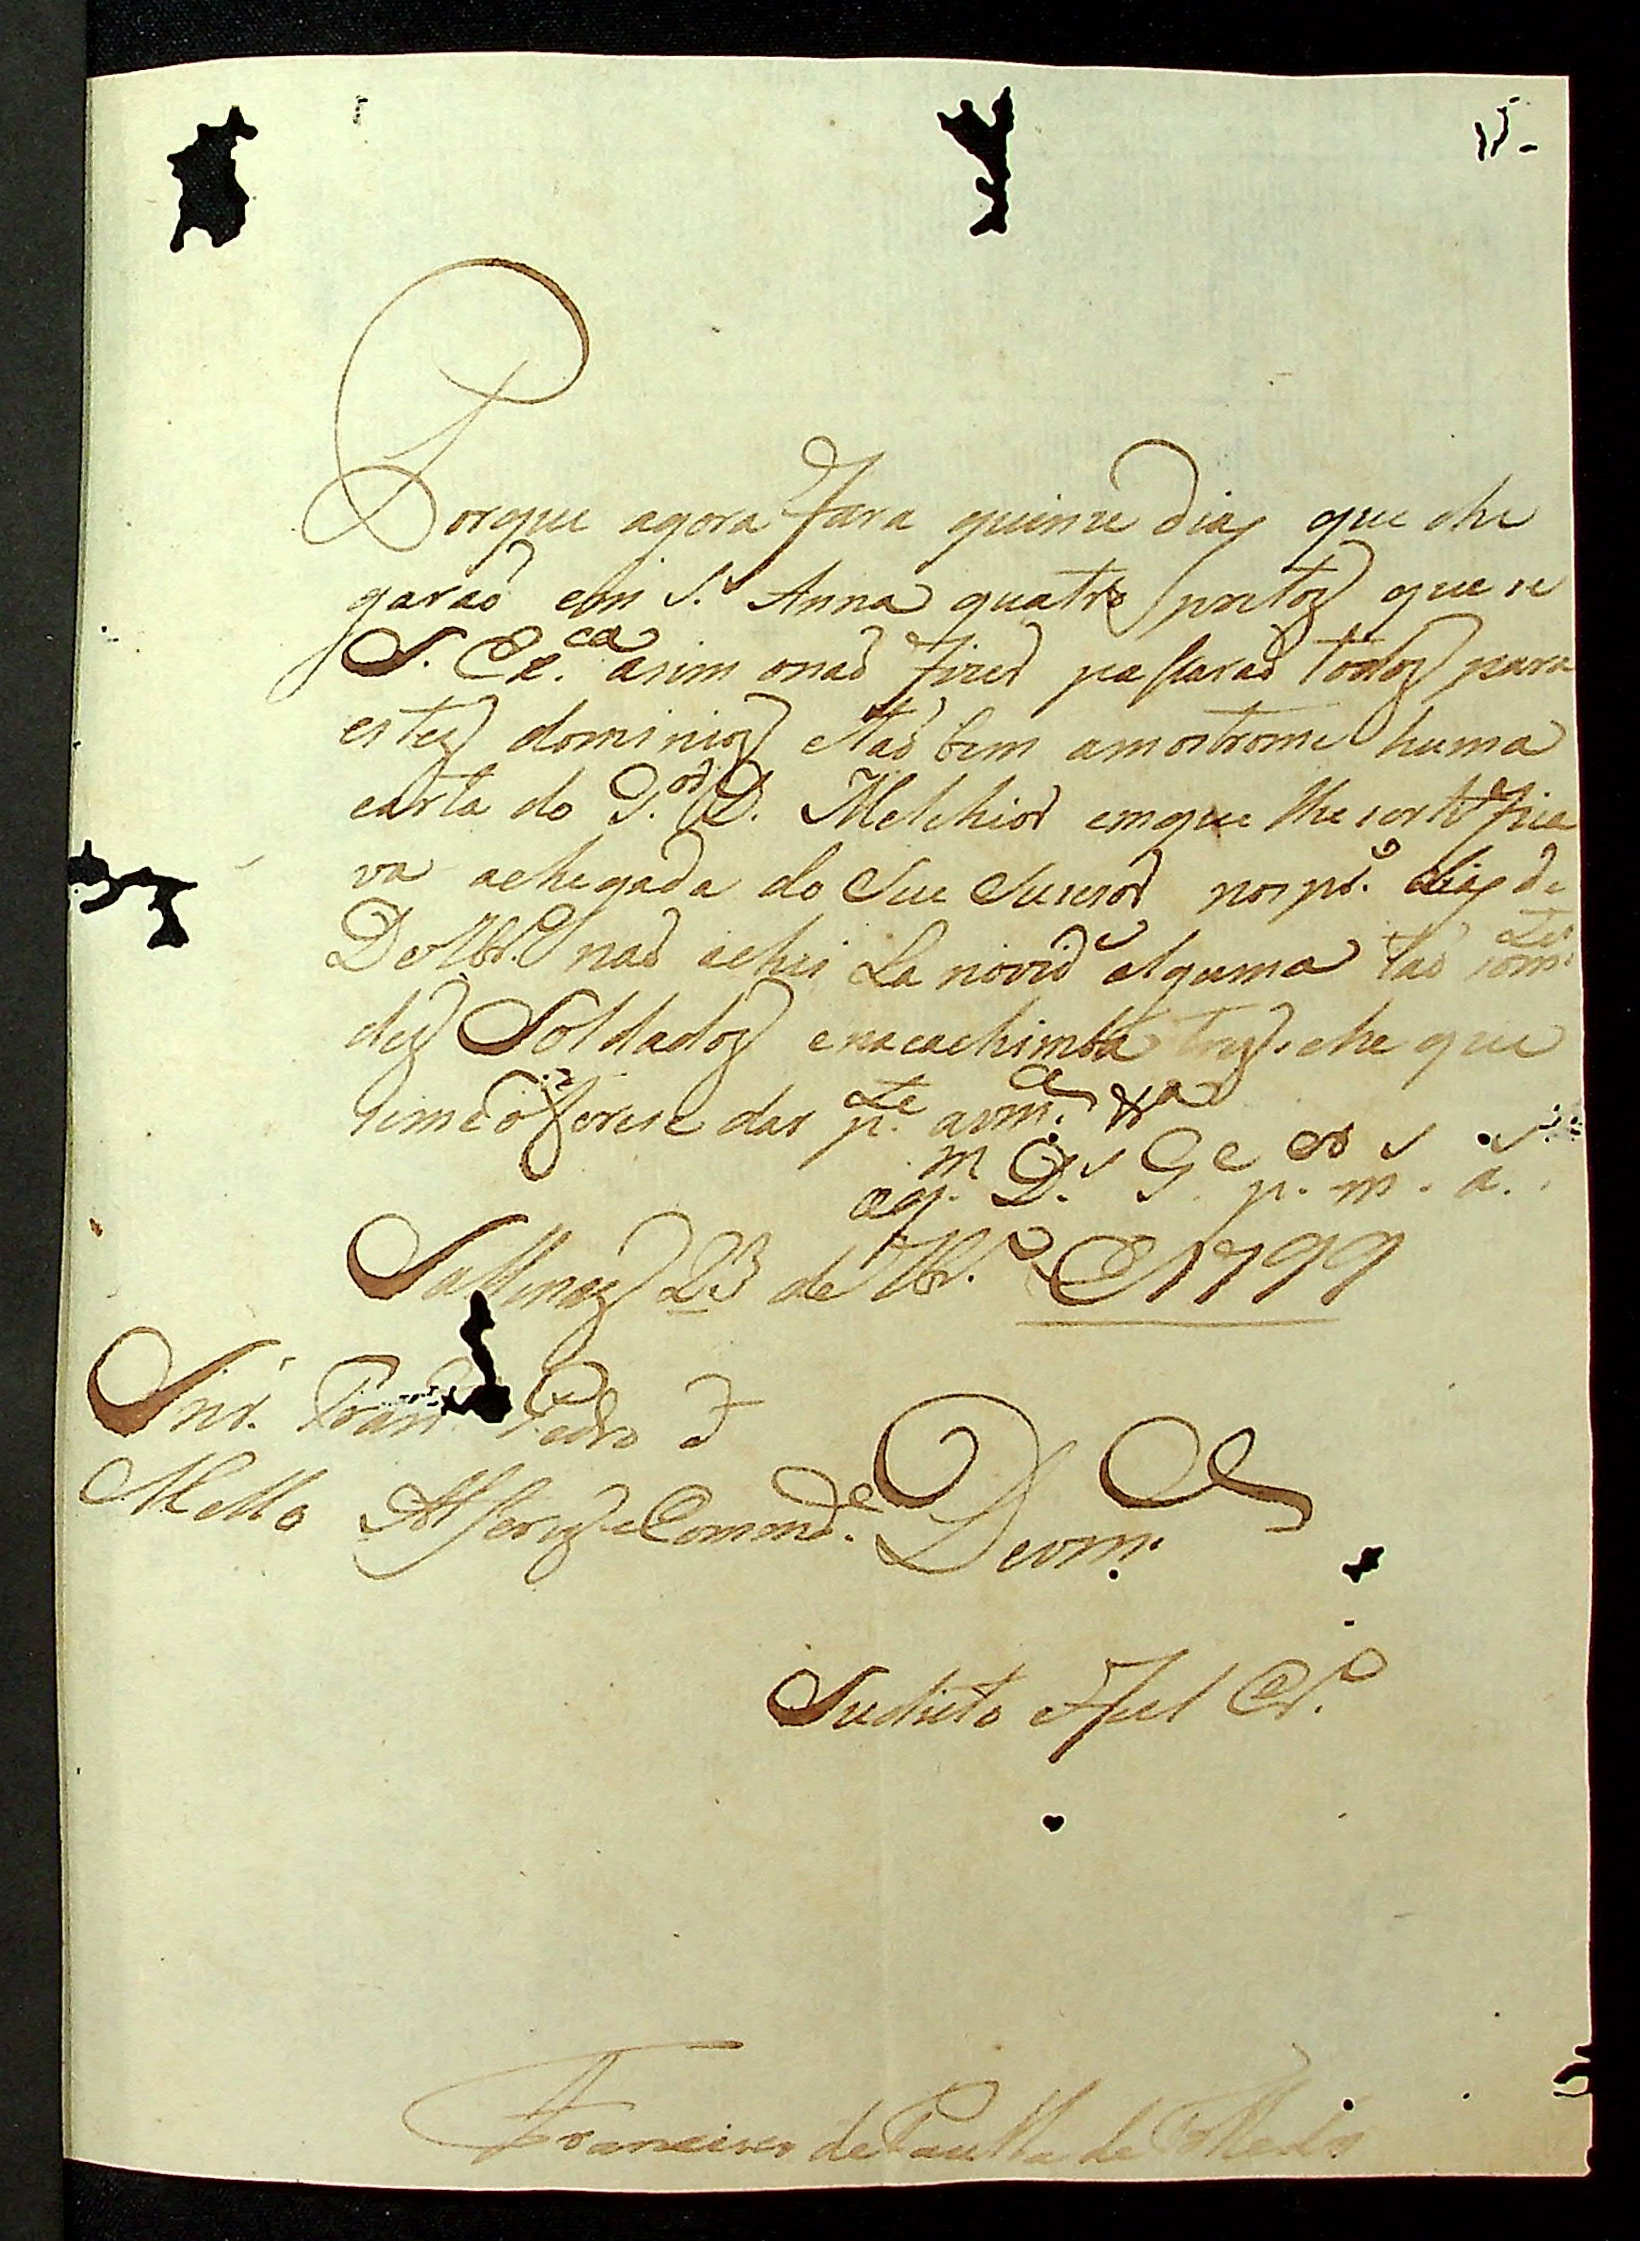 Porque agora fara quinze dias que che
garaõ em S.ta Anna quatro pretos que se
S. Ex.ca asim onaõ fizer pasaraõ todos para
estes dominios etaõ bem amostrome huma
carta do G.or D. Melchior emque lhe sertifica
va achegada do Sue Susesor nos pr.os dias de
De 7br.o naõ achei la novid.e alguma taõ som.te
des Soldados enacachimba tres. he que
seme oferese dar p.te avm.ce
aq.m D.s G.e p.r m.s a.s
Sallinas 23 de 7br.o E 1799
Snr. Fran.co Pedro d
Mello Alferes e Commd.e
Devm.ce
Sudieto Fiel Cr.o
Francisco de Paulla de